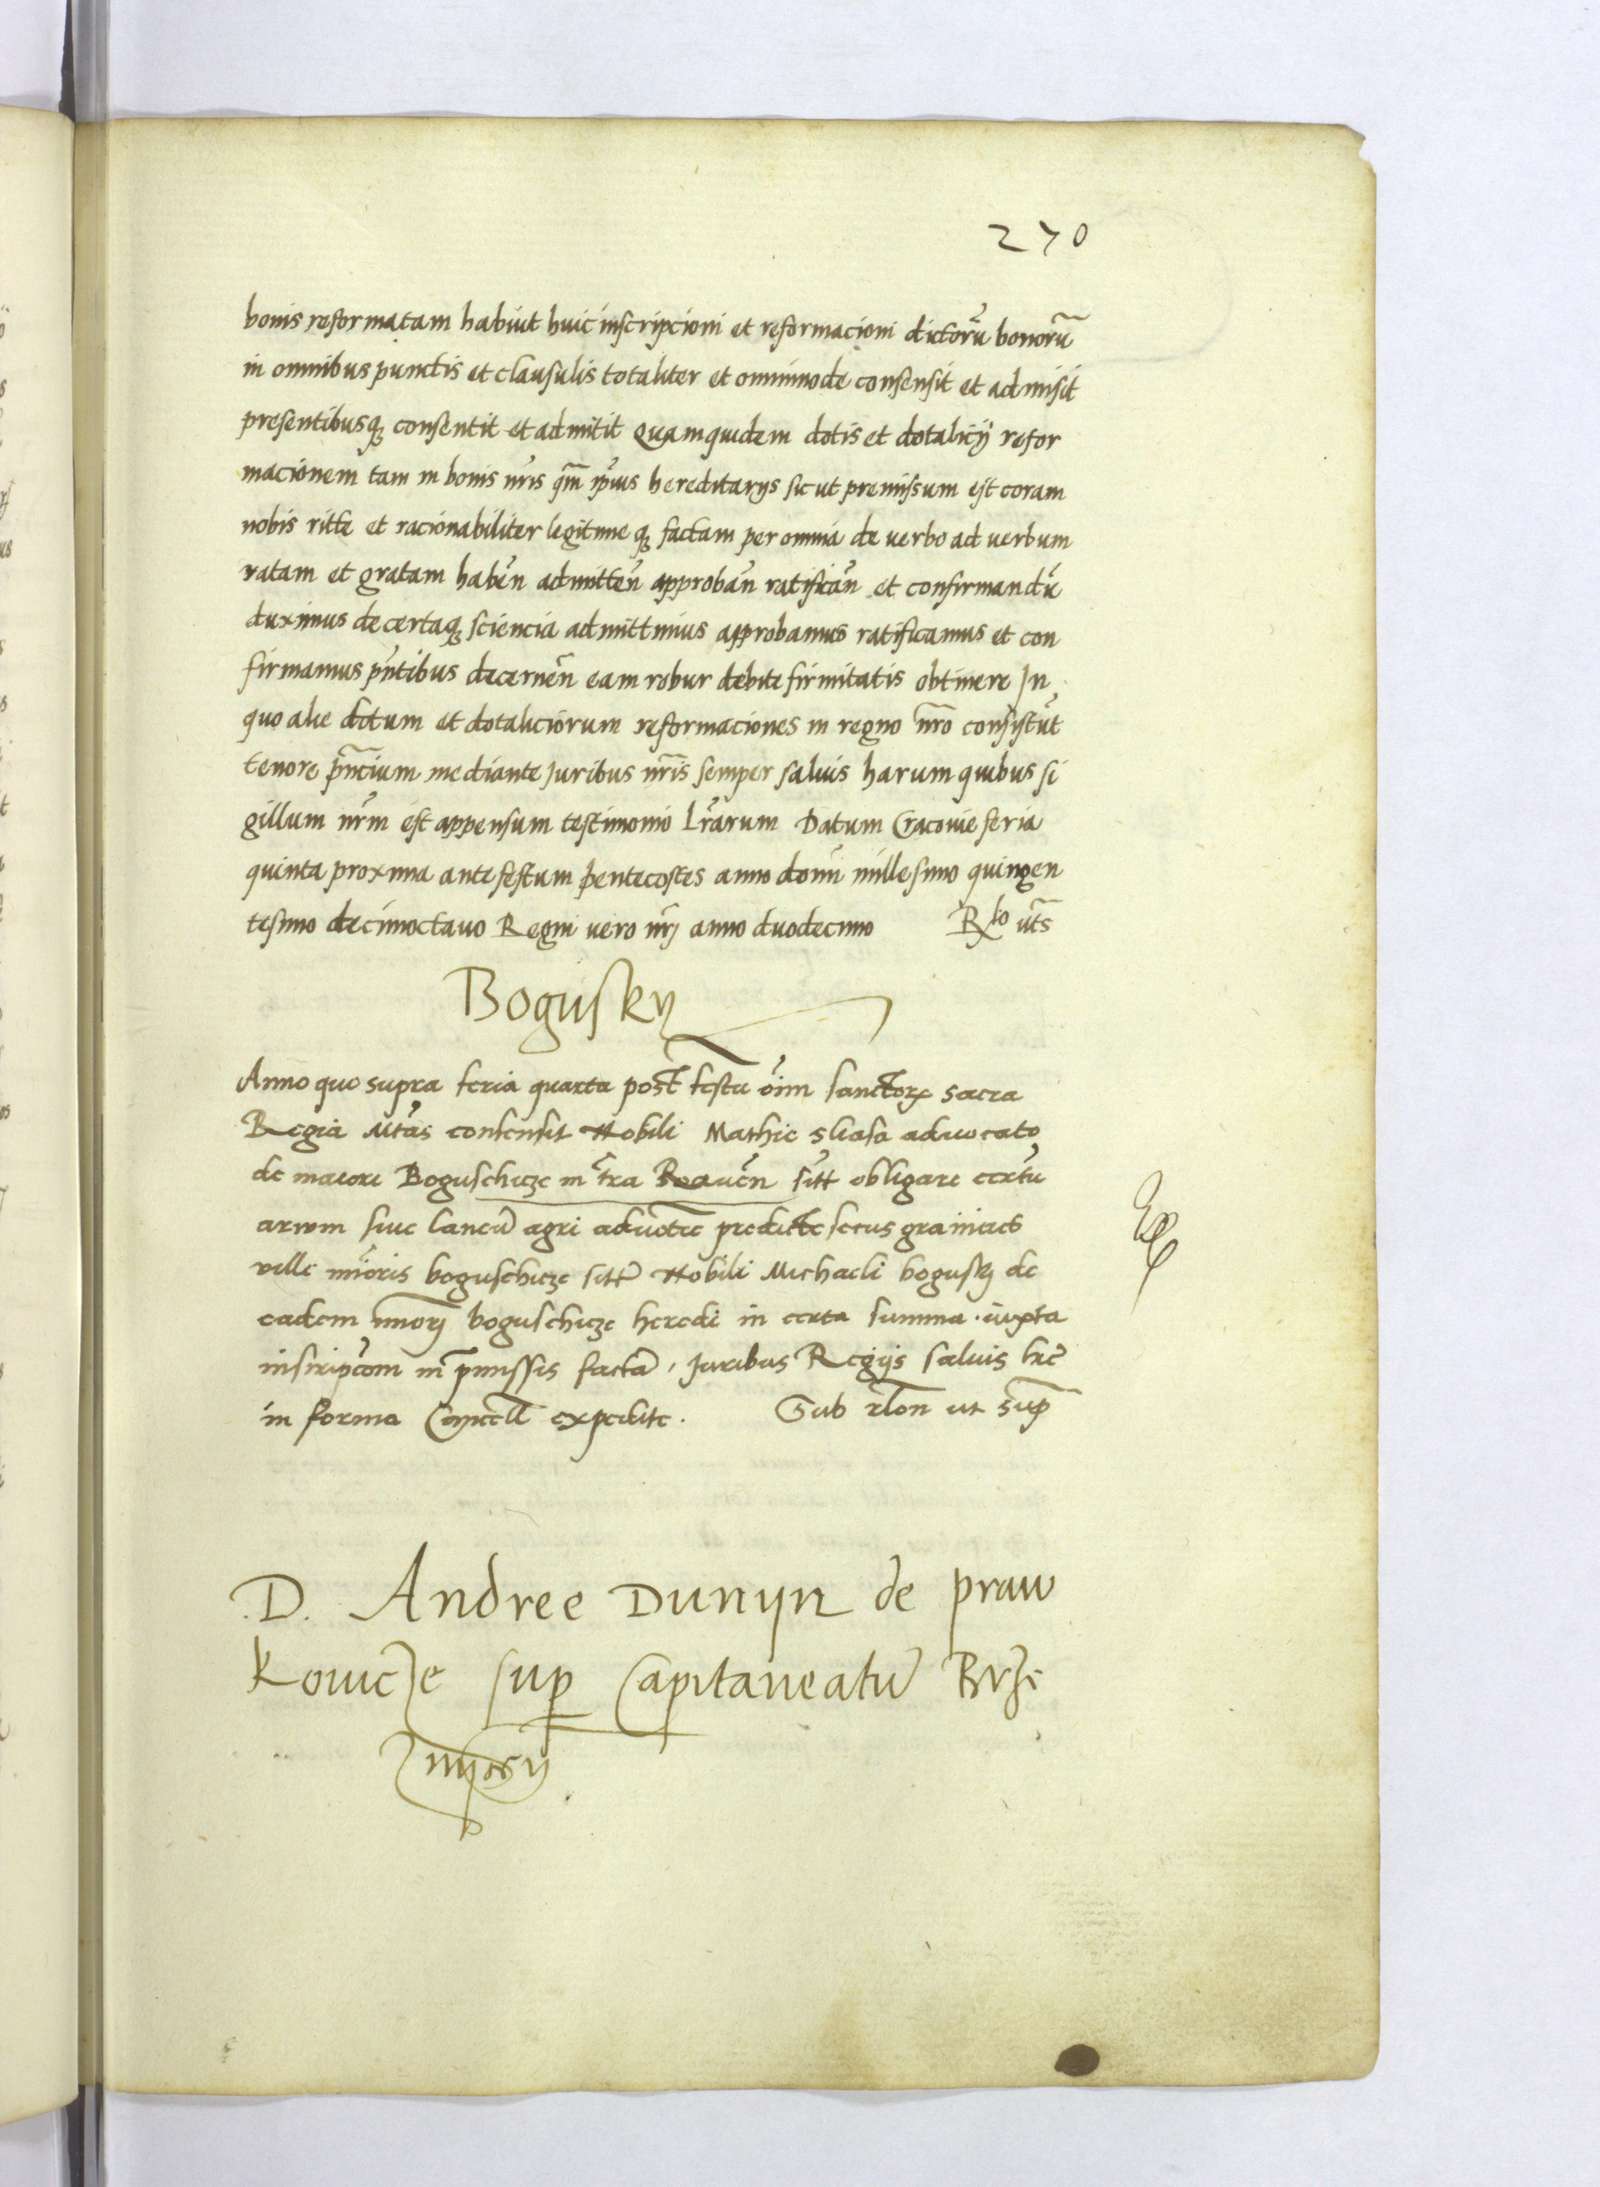 270
bonis reformatam habuit huic inscripcioni et reformacioni dictorũ bonorũ
in omnibus punctis et clausulis totaliter et omnimode consensit et admisit
presentibusqꝫ consentit et admittit Quamquidem dotis et dotalicij refor
macionem tam in bonis nr̃is qm̃ ip̃ius hereditarijs sicut premissum est coram
nobis ritte et racionabiliter legitime qꝫ factam per omnia de verbo ad verbum
ratam et gratam habeñ admitteñ approbañ ratificañ et confirmandũ
duximus de certaqꝫ sciencia admittimus approbamus ratificamus et con
firmamus pñtibus decerneñ eam robur debite firmitatis obtinere In
quo alie dotum et dotaliciorum reformaciones in regno nr̃o consistũt
tenore pñcium mediante Juribus nr̃is semper saluis harum quibus si
gillum nr̃m est appensum testimonio Lr̃arum Datum Cracouie feria
quinta proxima ante festum pentecostes anno domĩ millesimo quingen
tesimo decimoctauo Regni vero nr̃j anno duodecimo Rlo vts̃
Bogusky
Anno quo supra feria quarta post festũ oĩm sanctorꝝ sacra
Regia Mtãs consensit Nobili Mathie sliasa aduocato
de maiori Boguschicze in tr̃a Raueñ sitt̃ obligare certũ
aruum siue laneũ agri aduotie predicte secus granicies
ville mĩoris boguschicze sitt̃ Nobili Michaeli bogusky de
eadem minorj boguschicze heredi in certa summa iuxta
inscripcõm in p̃missis factã, Juribus Regijs saluis lrẽ
in forma Cancell̃ expedite. Sub rl̃on ut sup̃
D. Andree Dunyn de praw
kowicze sup Capitaneatũ Brze
znyczy